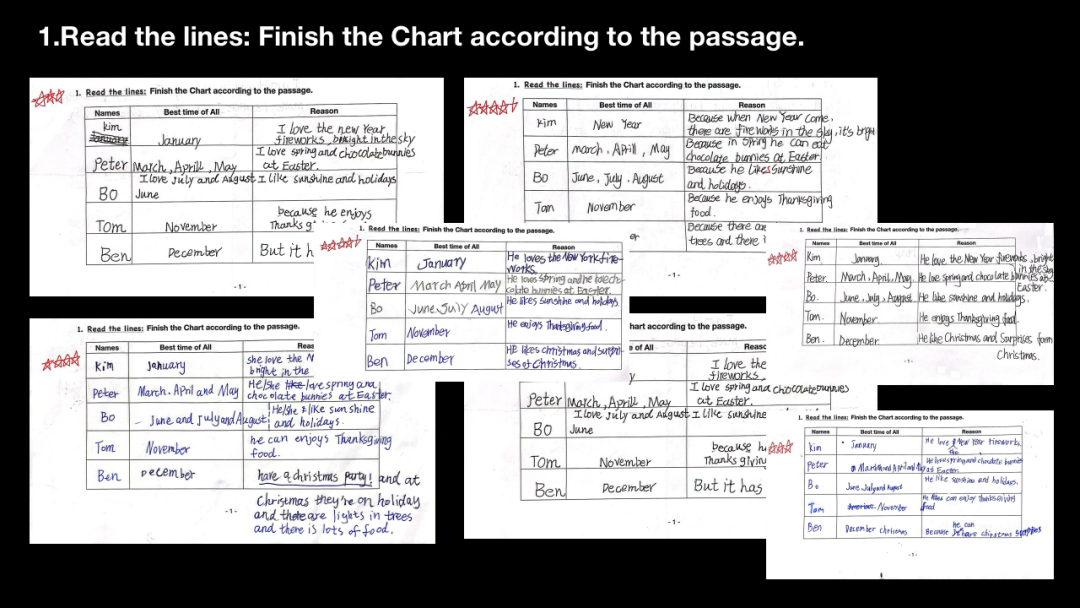 1.Read the lines: Finish the Chart according to the passage.
1. Read the lines: Finish the Chart according to the passage.
Names Best time of All Reason
kim January I love the new Year
fireworks, bright in the sky
Peter March, Aprill, May I love spring and chocolate bunnies
at Easter.
Bo I love July and August I like sunshine and holidays
June
Tom November because he enjoys
Thanks g
Ben December But it h
-1-
1. Read the lines: Finish the Chart according to the passage.
Names Best time of All Reason
Kim New Year Because when New Year come,
there are fireworks in the sky, it's brigh
Peter march, Aprill, May Because in Spring he can eat
chocolate bunnies at Easter.
Bo June, July, August Because he likes Sunshine
and holidays.
Tom November Because he enjoys Thanksgiving
food.
er Because there are
trees and there i
-1-
1. Read the lines: Finish the Chart according to the passage.
Names Best time of All Reason
Kim January He loves the New York fire-
works.
Peter March April May He loves spring and he choc
colate bunnies at Easter.
Bo June July August He likes sunshine and holidays
Tom November He enjoys Thanksgiving food.
Ben December HE likes christmas and surpri-
ses of Christmas.
1. Read the lines: Finish the Chart according to the passage.
Names Best time of All Reason
Kim January He love the New Year fireworks, bright
in the sky
Peter. March, April, May He love spring and chocolate bunnies at
Easter.
Bo. June, July, August He like sunshine and holidays.
Tom. November He enjoys Thanksgiving food.
Ben. December He like Christmas and Surprises form
Christmas.
1. Read the lines: Finish the Chart according to the passage.
Names Best time of All Reas
Kim January she love the N
bright in the
Peter March, April and May He/She like love spring and
chocolate bunnies at Easter.
Bo June and July and August He/she like sunshine
and holidays.
Tom November he can enjoys Thanksgiving
food.
Ben December have a christmas party! and at
Christmas they're on holiday
and there are lights in trees
and there is lots of food.
-1-
hart according to the passage.
e of All Reaso
y I love the
fireworks,
Peter March, Aprill, May I love spring and chocolate bunnies
at Easter.
BO I love July and August I like sunshine
June
Tom November because h
Thanks givin
Ben December But it has
-1-
1. Read the lines: Finish the Chart according to the passage.
Names Best time of All Reason
kim January He love New Year fireworks.
Peter March and April and May He love spring and chocolate bunnies
at Easter.
Bo June July and August He like sunshine and holidays.
Tom November He can enjoy thanksgiving
food
Ben December christmas he can
Because have christmas surprises
-1-